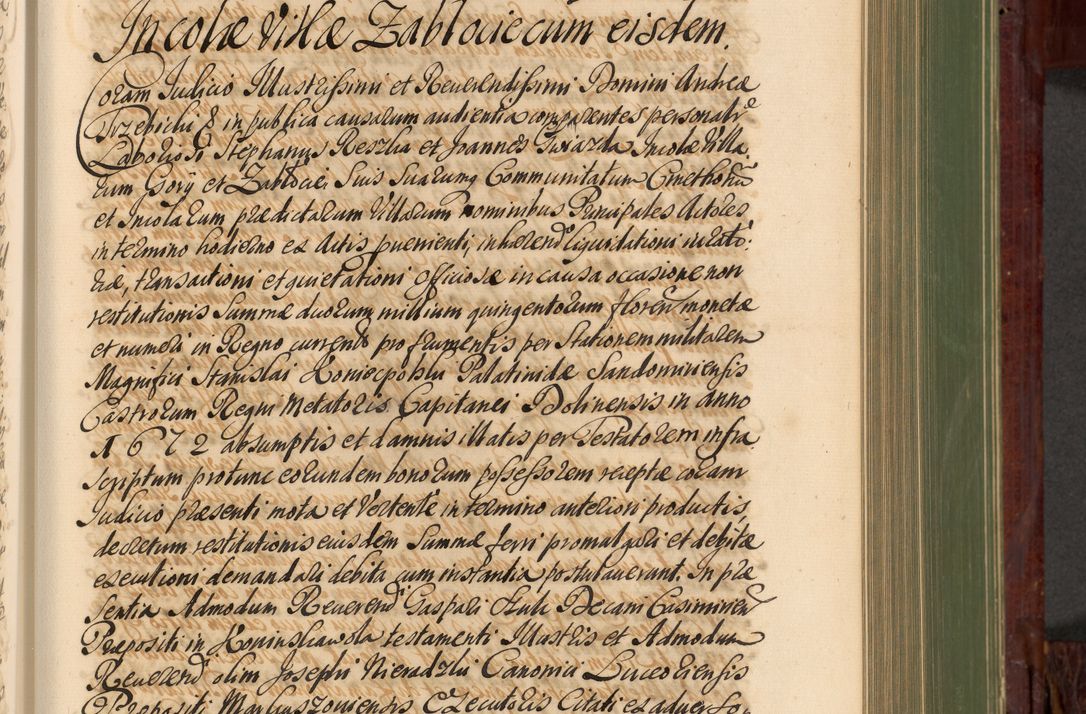 Incolæ Villæ Zablocie cum eisdem.
Coram Judicio Illustrissimi et Reuerendissimi Domini Andreæ
Trzebicki & in publica causarum audientia comparentes personalr̃
Laboriosi Stephanus Reszka et Joannes Gwiazda Incolæ Villa,
rum Gory et Zablociei suis suarumq Communitatum Cmethonũ
et Incolarum prædictarum Villarum nominibus Principales Actores
in termino hodierno ex Actis prouenienti, inhærendo liquidationi iurato:
riæ, transactioni et quietationi officiosæ in causa occasione non
restitutionis Summæ duorum millium quingentorum floren monetæ
et numeri in Regno currentis pro frumentis per Stationem militarem
Magnifici Stanislai Koniecpolski Palatinidæ Sandomiriensis
Castrorum Regni Metatoris Capitanei Dolinensis in anno
1672 absumptis et damnis illatis per Testatorem infra
scriptum protunc eorundem bonorum possessorem receptæ coram
Judicio præsenti mota et Vertente in termino anteriori productis,
decretum restitutionis eiusdem Summæ ferri promulgari et debitæ
executioni demandari debita cum instantia postulauerunt. In præ
sentia Admodum Reuerendi Gaspari Decani Casimirien
Præpositi in testamenti Illustris et Admodum
Reuerendi olim Josephi Nieradzki Canonici Luceoriensis
Præpositi Executoris Citati ex aduerso,